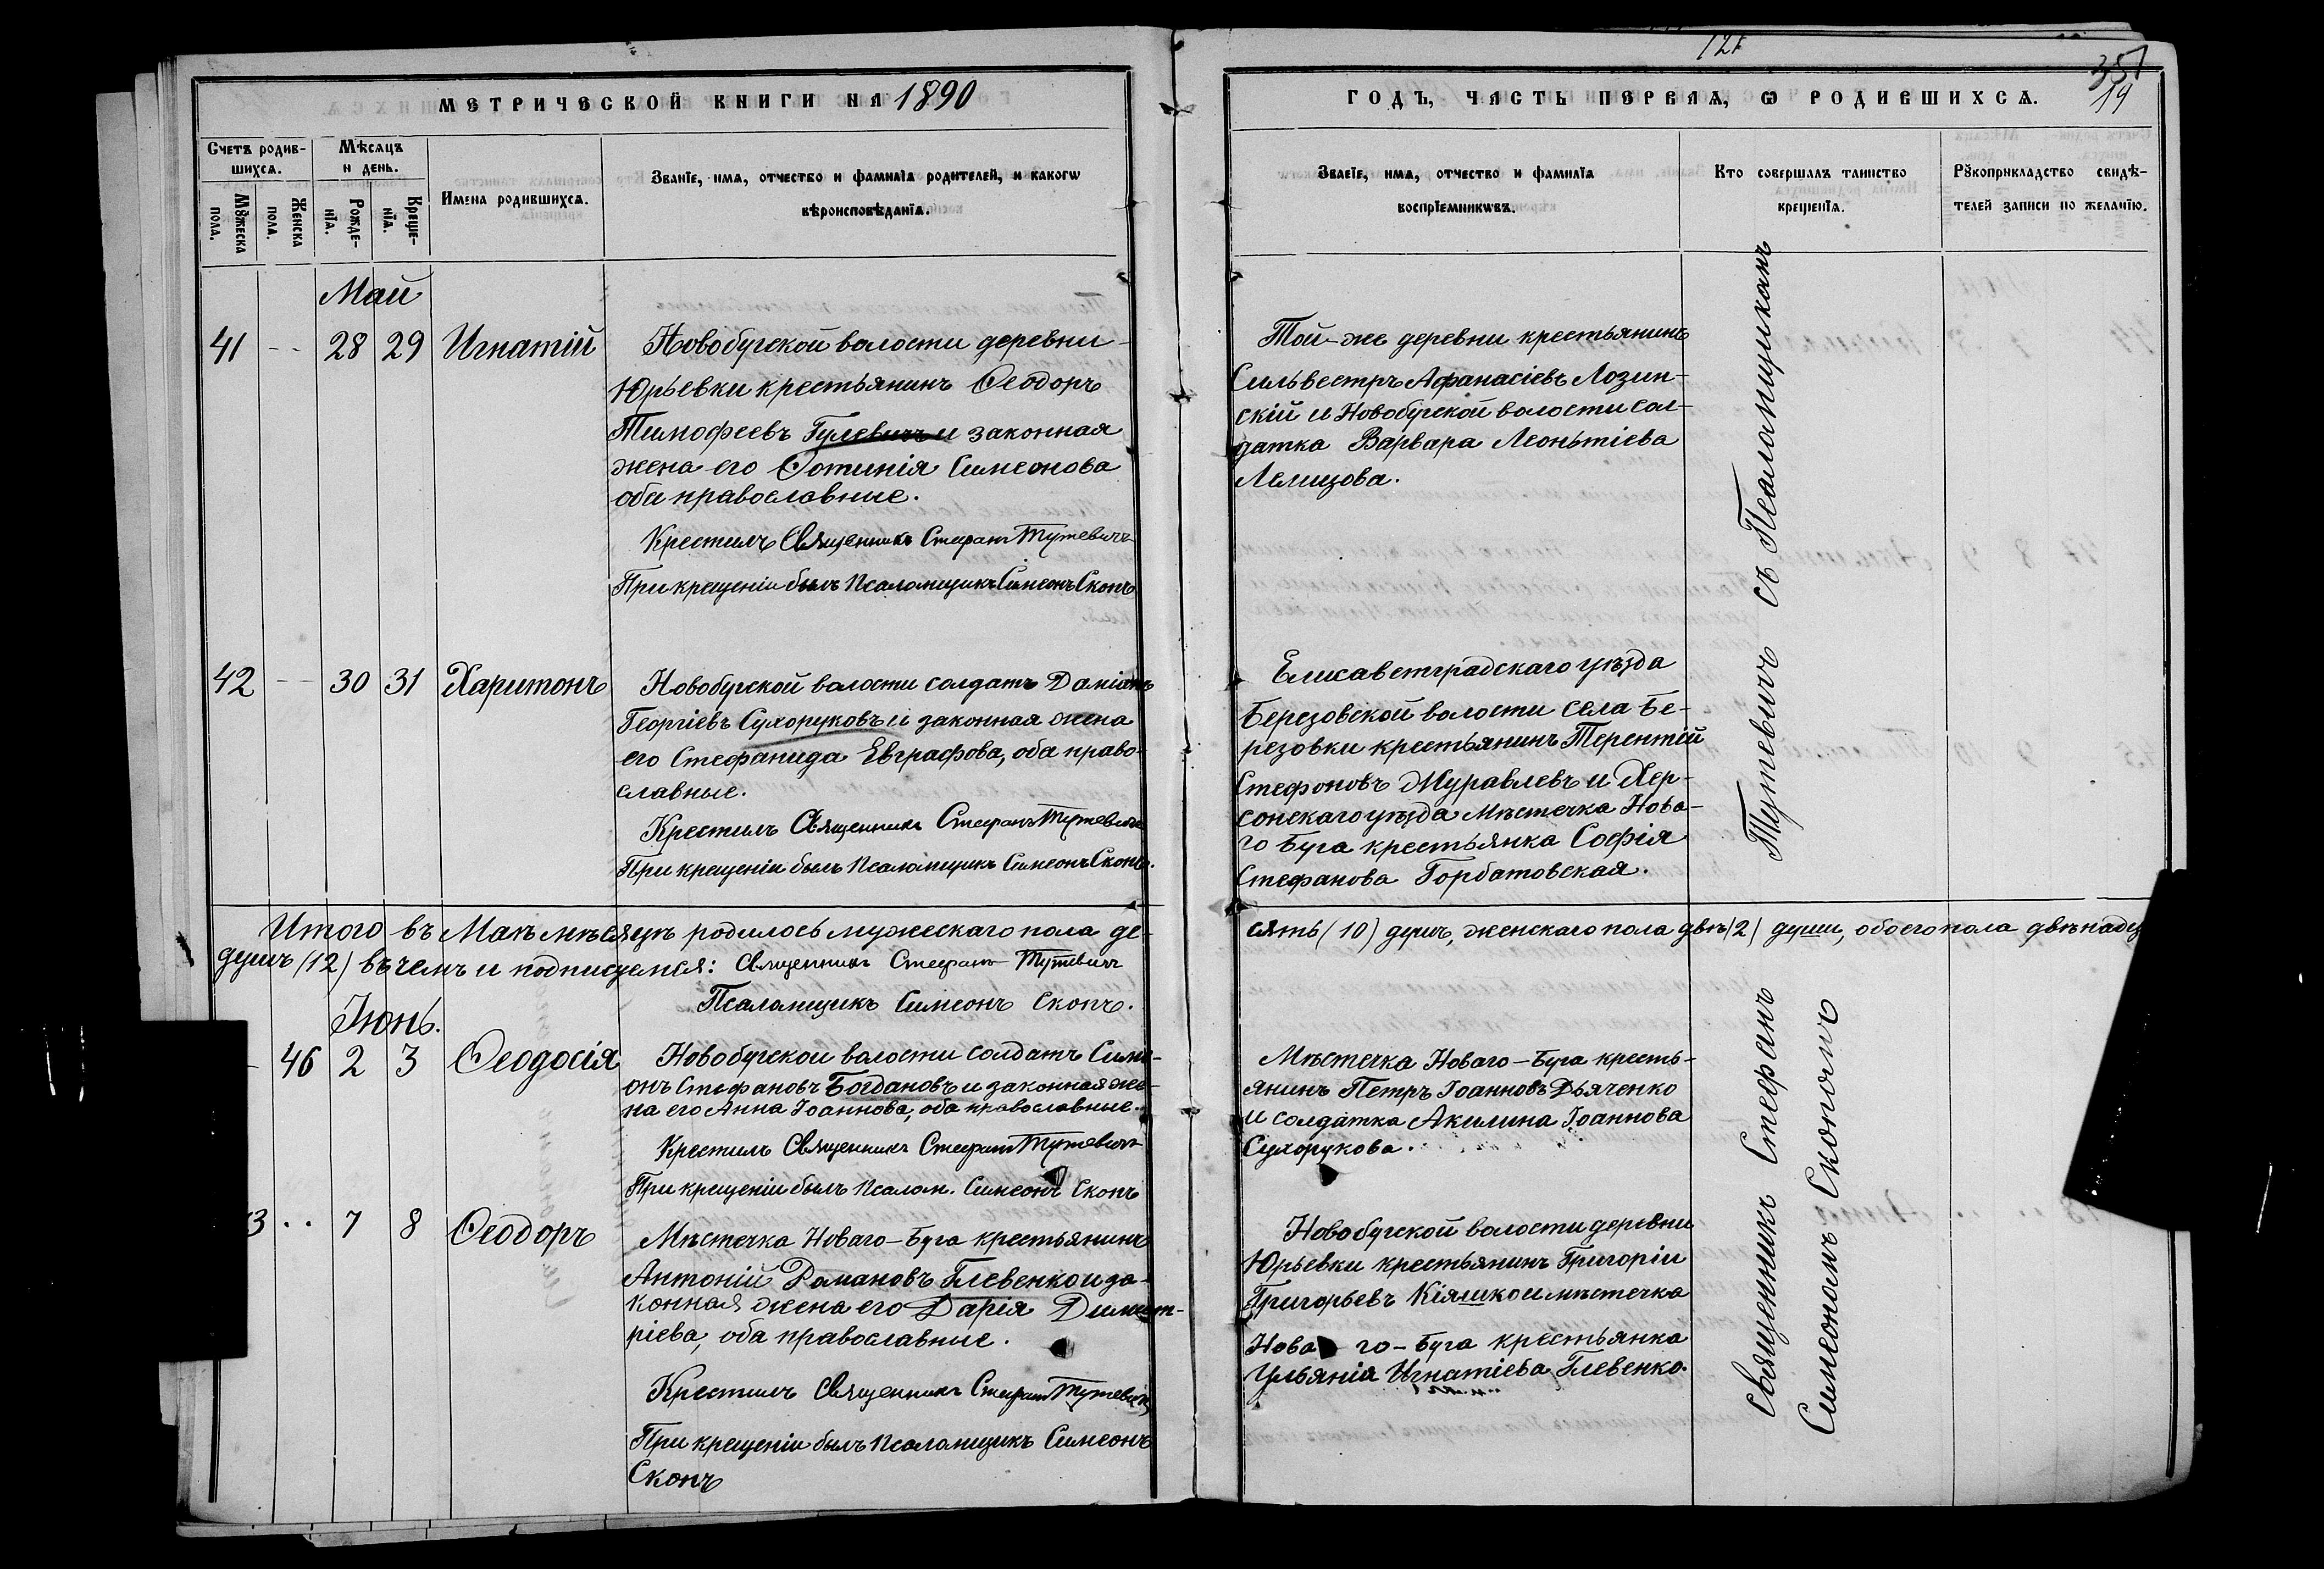 МЕТРИЧЕСКОЙ КНИГИ НА 1890
Счетъ родив-
шихся.
Мѣсяцъ
и день.
Мужеска
пола.
Женска
пола.
Рожде-
нія.
Креще-
нія.
Имена родившихся.
Званіе, имя, отчество и фамилія родителей, и какогѡ
вѣроисповѣданія.
Май
41 - - 28 29 Игнатій
Новобугской волости деревни
Юрьевки крестьянинъ Ѳеодоръ
Тимофеевъ Гулевичъ и законная
жена его Фотинія Симеонова
оба православные.
Крестилъ Священникъ Стефанъ Тутевичъ
При крещеніи былъ Псаломщикъ Симеонъ Скопъ
42 - - 30 31 Харитонъ
Новобугской волости солдатъ Даміанъ
Георгіевъ Сухоруковъ и законная жена
его Стефанида Евграфова, оба право-
славные.
Крестилъ Священникъ Стефанъ Тутевичъ
При крещеніи былъ Псаломщикъ Симеонъ Скопъ.
Итого въ Маѣ мѣсяцѣ родилось мужескаго пола де-
душъ (12) въ чемъ и подписуемся: Священникъ Стефанъ Тутевичъ
Псаломщикъ Симеонъ Скопъ.
Іюнь.
- 46 2 3 Ѳеодосія
Новобугской волости солдатъ Симе-
онъ Стефановъ Богдановъ и законная же-
на его Анна Іоаннова, оба православные.
Крестилъ Священникъ Стефанъ Тутевичъ
При крещеніи былъ Псалом. Симеонъ Скопъ
3 .. 7 8 Ѳеодоръ
Мѣстечка Новаго-Буга крестьянинъ
Антоній Романовъ Глевенко и за-
конная жена его Дарія Димит-
ріева, оба православные.
Крестилъ Священникъ Стефанъ Тутевичъ
При крещеніи былъ Псаломщикъ Симеонъ
Скопъ
351
19
ГОДЪ, ЧАСТЬ ПЕРВАЯ, Ѡ РОДИВШИХСЯ.
Званіе, имя, отчество и фамилія
воспріемникѡвъ.
Кто совершалъ таинство
крещенія.
Рукоприкладство свидѣ-
телей записи по желанію.
Той-же деревни крестьянинъ
Сильвестръ Афанасіевъ Лозин-
скій и Новобугской волости сол-
датка Варвара Леонтіева
Лемицова.
Елисаветградскаго уѣзда
Березовской волости села Бе-
резовки крестьянинъ Терентій
Стефоновъ Муравлевъ и Хер-
сонскаго уѣзда Мѣстечка Нова-
го Буга крестьянка Софія
Стефанова Горбатовская.
сять (10) душъ, женскаго пола двѣ (2) души, обоего пола двѣнадц
Мѣстечка Новаго-Буга кресть-
янинъ Петръ Іоанновъ Дьяченко
и солдатка Акилина Іоаннова
Сухорукова.
Новобугской волости деревни
Юрьевки крестьянинъ Григорій
Григорьевъ Кіяшко и мѣстечка
Нова го-Буга крестьянка
Ульянія Игнатіева Глевенко.
Священникъ Стефанъ Тутевичъ съ Псаломщикомъ
Симеономъ Скопомъ